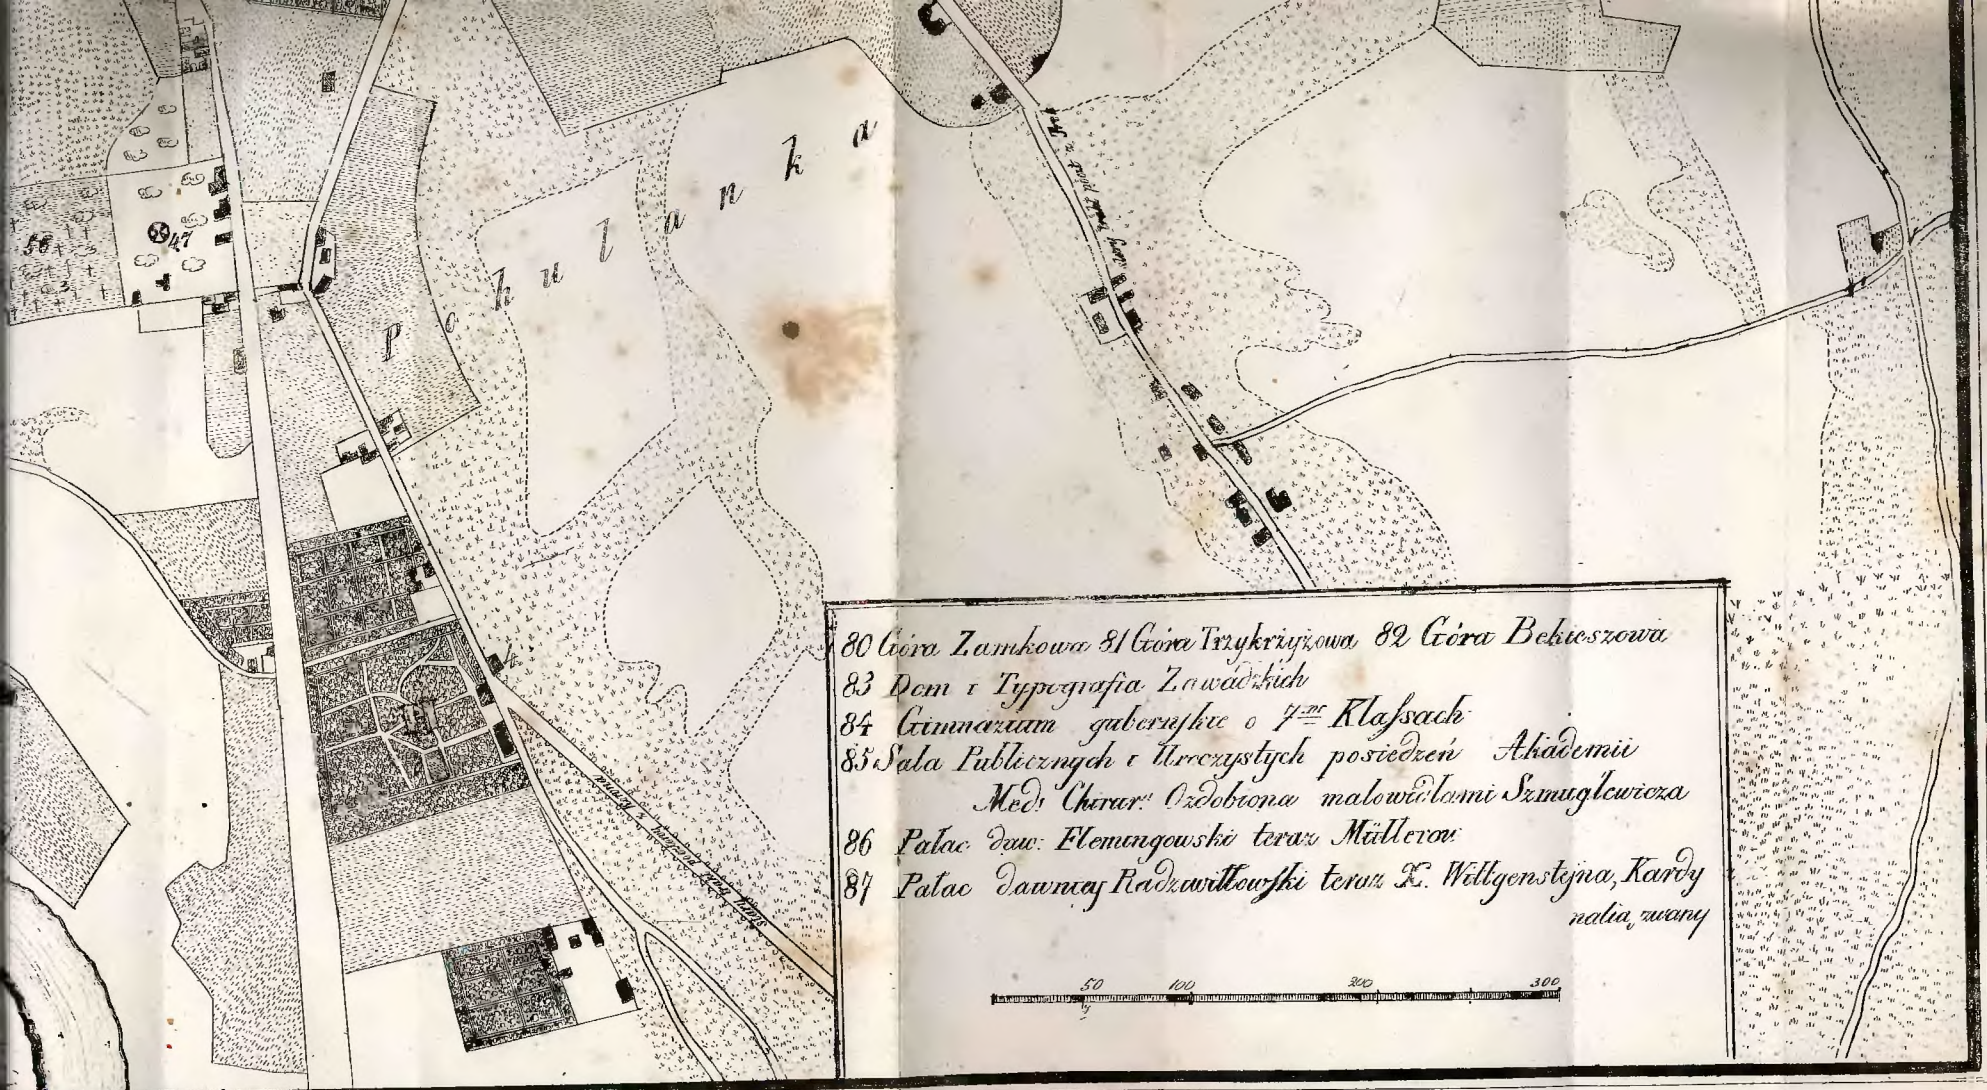 Pohulanka
56
47
H
stary gościniec z Kowna
80 Góra Zamkowa 81 Góra Trzykrżyżowa 82 Góra Bekieszowa
83 Dom i Typografia Zawadzkich
84 Gimnazium gubernſkie o 7miu Klaſsach
85 Sala Publicznych i Uroczystych posiedzeń Akademii
Med: Chirur: Ozdobiona malowidłami Szmuglewicza
86 Pałac daw: Flemingowski teraz Müllerow:
87 Pałac dawniey Radziwiłłowſki teraz X. Wittgenstejna, Kardy
nalią zwany
50 100 200 300